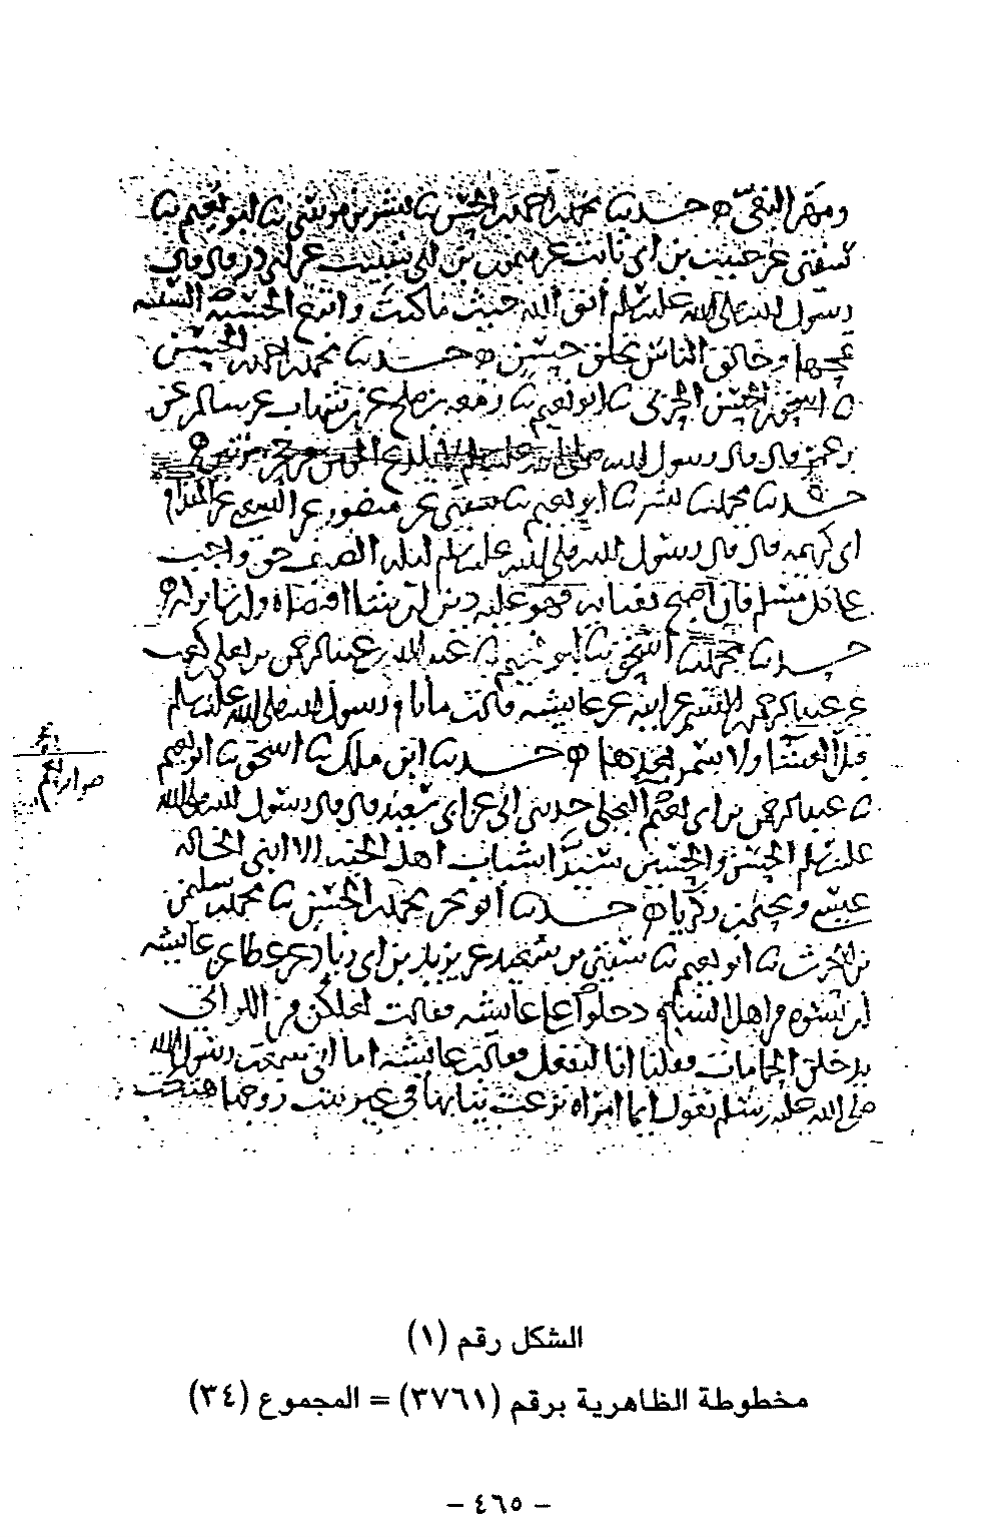 ومقر التقي ه حدثنا محمد بن احمد بن الحسن ثنا بشر بن موسى ثنا ابو نعيم ثنا
سفين عن حبيب بن ابي ثابت عن ميمون بن ابي شبيب عن ابي ذر قال قال
رسول الله صلى الله عليه وسلم اتق الله حيث ما كنت واتبع الحسنة السيئة
تمحها وخالق الناس بخلق حسن ه حدثنا محمد بن احمد بن الحسين
ثنا اسحق بن الحسن الحربي ثنا ابو نعيم ثنا زمعه بن صالح عن ابن شهاب عن سالم عن
بن عمر قال قال رسول الله صلى الله عليه وسلم لا يلدغ المومن من جحر مرتين ه
حدثنا محمد ثنا بشر ثنا ابو نعيم ثنا سفين عن منصور عن الشعبي عن المقدام
ابي كريمه قال قال رسول الله صلى الله عليه وسلم ليله الضيف حق واجب
على كل مسلم فان اصبح بفنايه فهو عليه دين ان شا اقتضاه وان شا تركه ه
حدثنا محمد ثنا اسحق ثنا ابو نعيم ثنا عبد الله بن عبد الرحمن بن يعلى بن كعب
عن عبد الرحمن بن القسم عن ابيه عن عايشه قالت ما نام رسول الله صلى الله عليه وسلم
قبل العشا ولا سمر بعدها ه حدثنا ابن ملك ثنا اسحق ثنا ابو نعيم
ثنا عبد الرحمن بن ابي نعم البجلي حدثني ابي عن ابي سعيد قال قال رسول الله صلى الله
عليه وسلم الحسن والحسين سيدا شباب اهل الجنه الا ابني الخاله
عيسى ويحيى بن زكريا ه حدثنا ابو بحر محمد بن الحسن ثنا محمد بن سليمن
بن الحرث ثنا ابو نعيم ثنا سفين بن سعيد عن يزيد بن ابي زياد عن عطا عن عايشه
ان نسوه من اهل الشام دخلوا على عايشه فقالت لعلكن من اللواتي
يدخلن الحمامات فقلنا انا لنفعل فقالت عايشه اما اني سمعت رسول الله
صلى الله عليه وسلم يقول ايما امراه نزعت ثيابها في غير بيت زوجها هتكت
صوابه
الشكل رقم (١)
مخطوطة الظاهرية برقم (٣٧٦١) = المجموع (٣٤)
- ٤٦٥ -